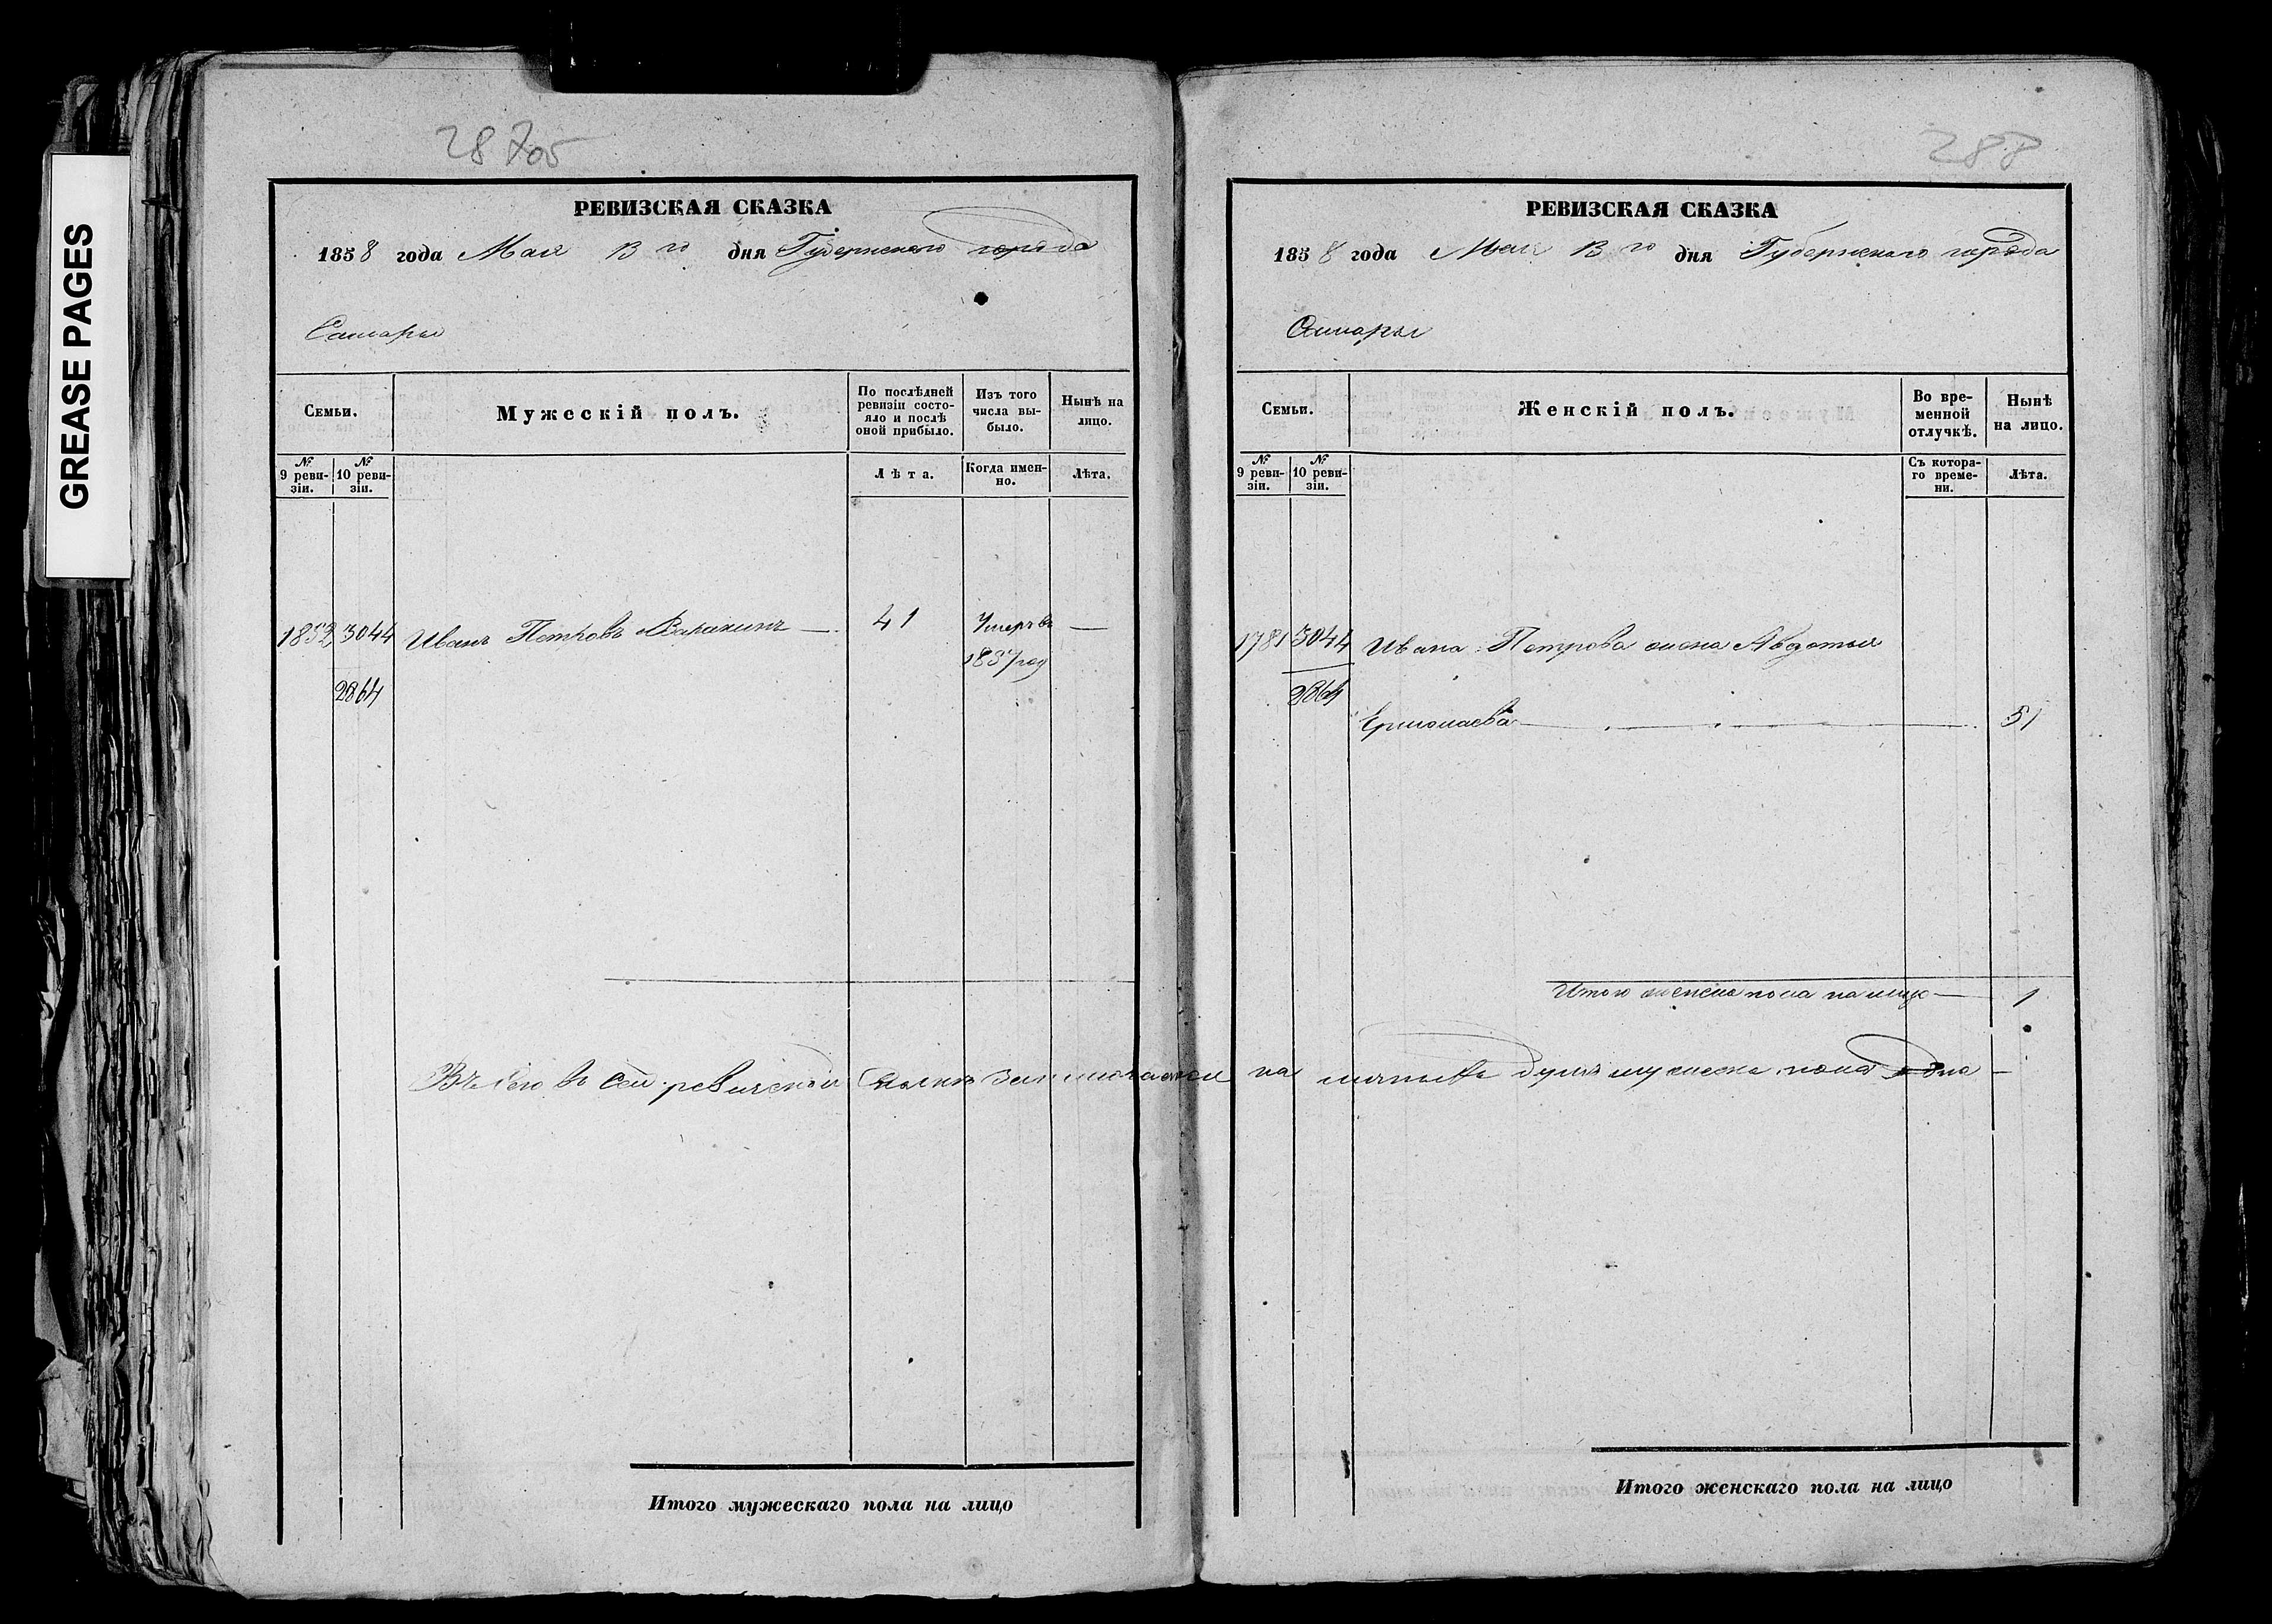 GREASE PAGES
28705
РЕВИЗСКАЯ СКАЗКА
1858 года Мая 13 го дня Губернского города
Самары
Семьи.
Мужескій полъ.
По послѣдней
ревизіи состо-
яло и послѣ
оной прибыло.
Изъ того
числа вы-
было.
Нынѣ на
лицо.
№
9 реви-
зіи.
№
10 реви-
зіи.
Лѣта.
Когда имен-
но.
Лѣта.
1852 3044 Иванъ Петровъ 41 Умеръ въ —
1857 год
2864
Въ сей ревизской
Итого мужескаго пола на лицо
288
РЕВИЗСКАЯ СКАЗКА
1858 года Мая 13 го дня Губернскаго города
Самары
Семьи.
Женскій полъ.
Во вре-
менной
отлучкѣ.
Нынѣ
на лицо.
№
9 реви-
зіи.
№
10 реви-
зіи.
Съ котора-
го време-
ни.
Лѣта.
1781 3044 Ивана Петрова жена Авдотья
2864
Ермолаева 51
Итого женска пола на лицо — 1
на душа мужеска пола одна —
Итого женскаго пола на лицо